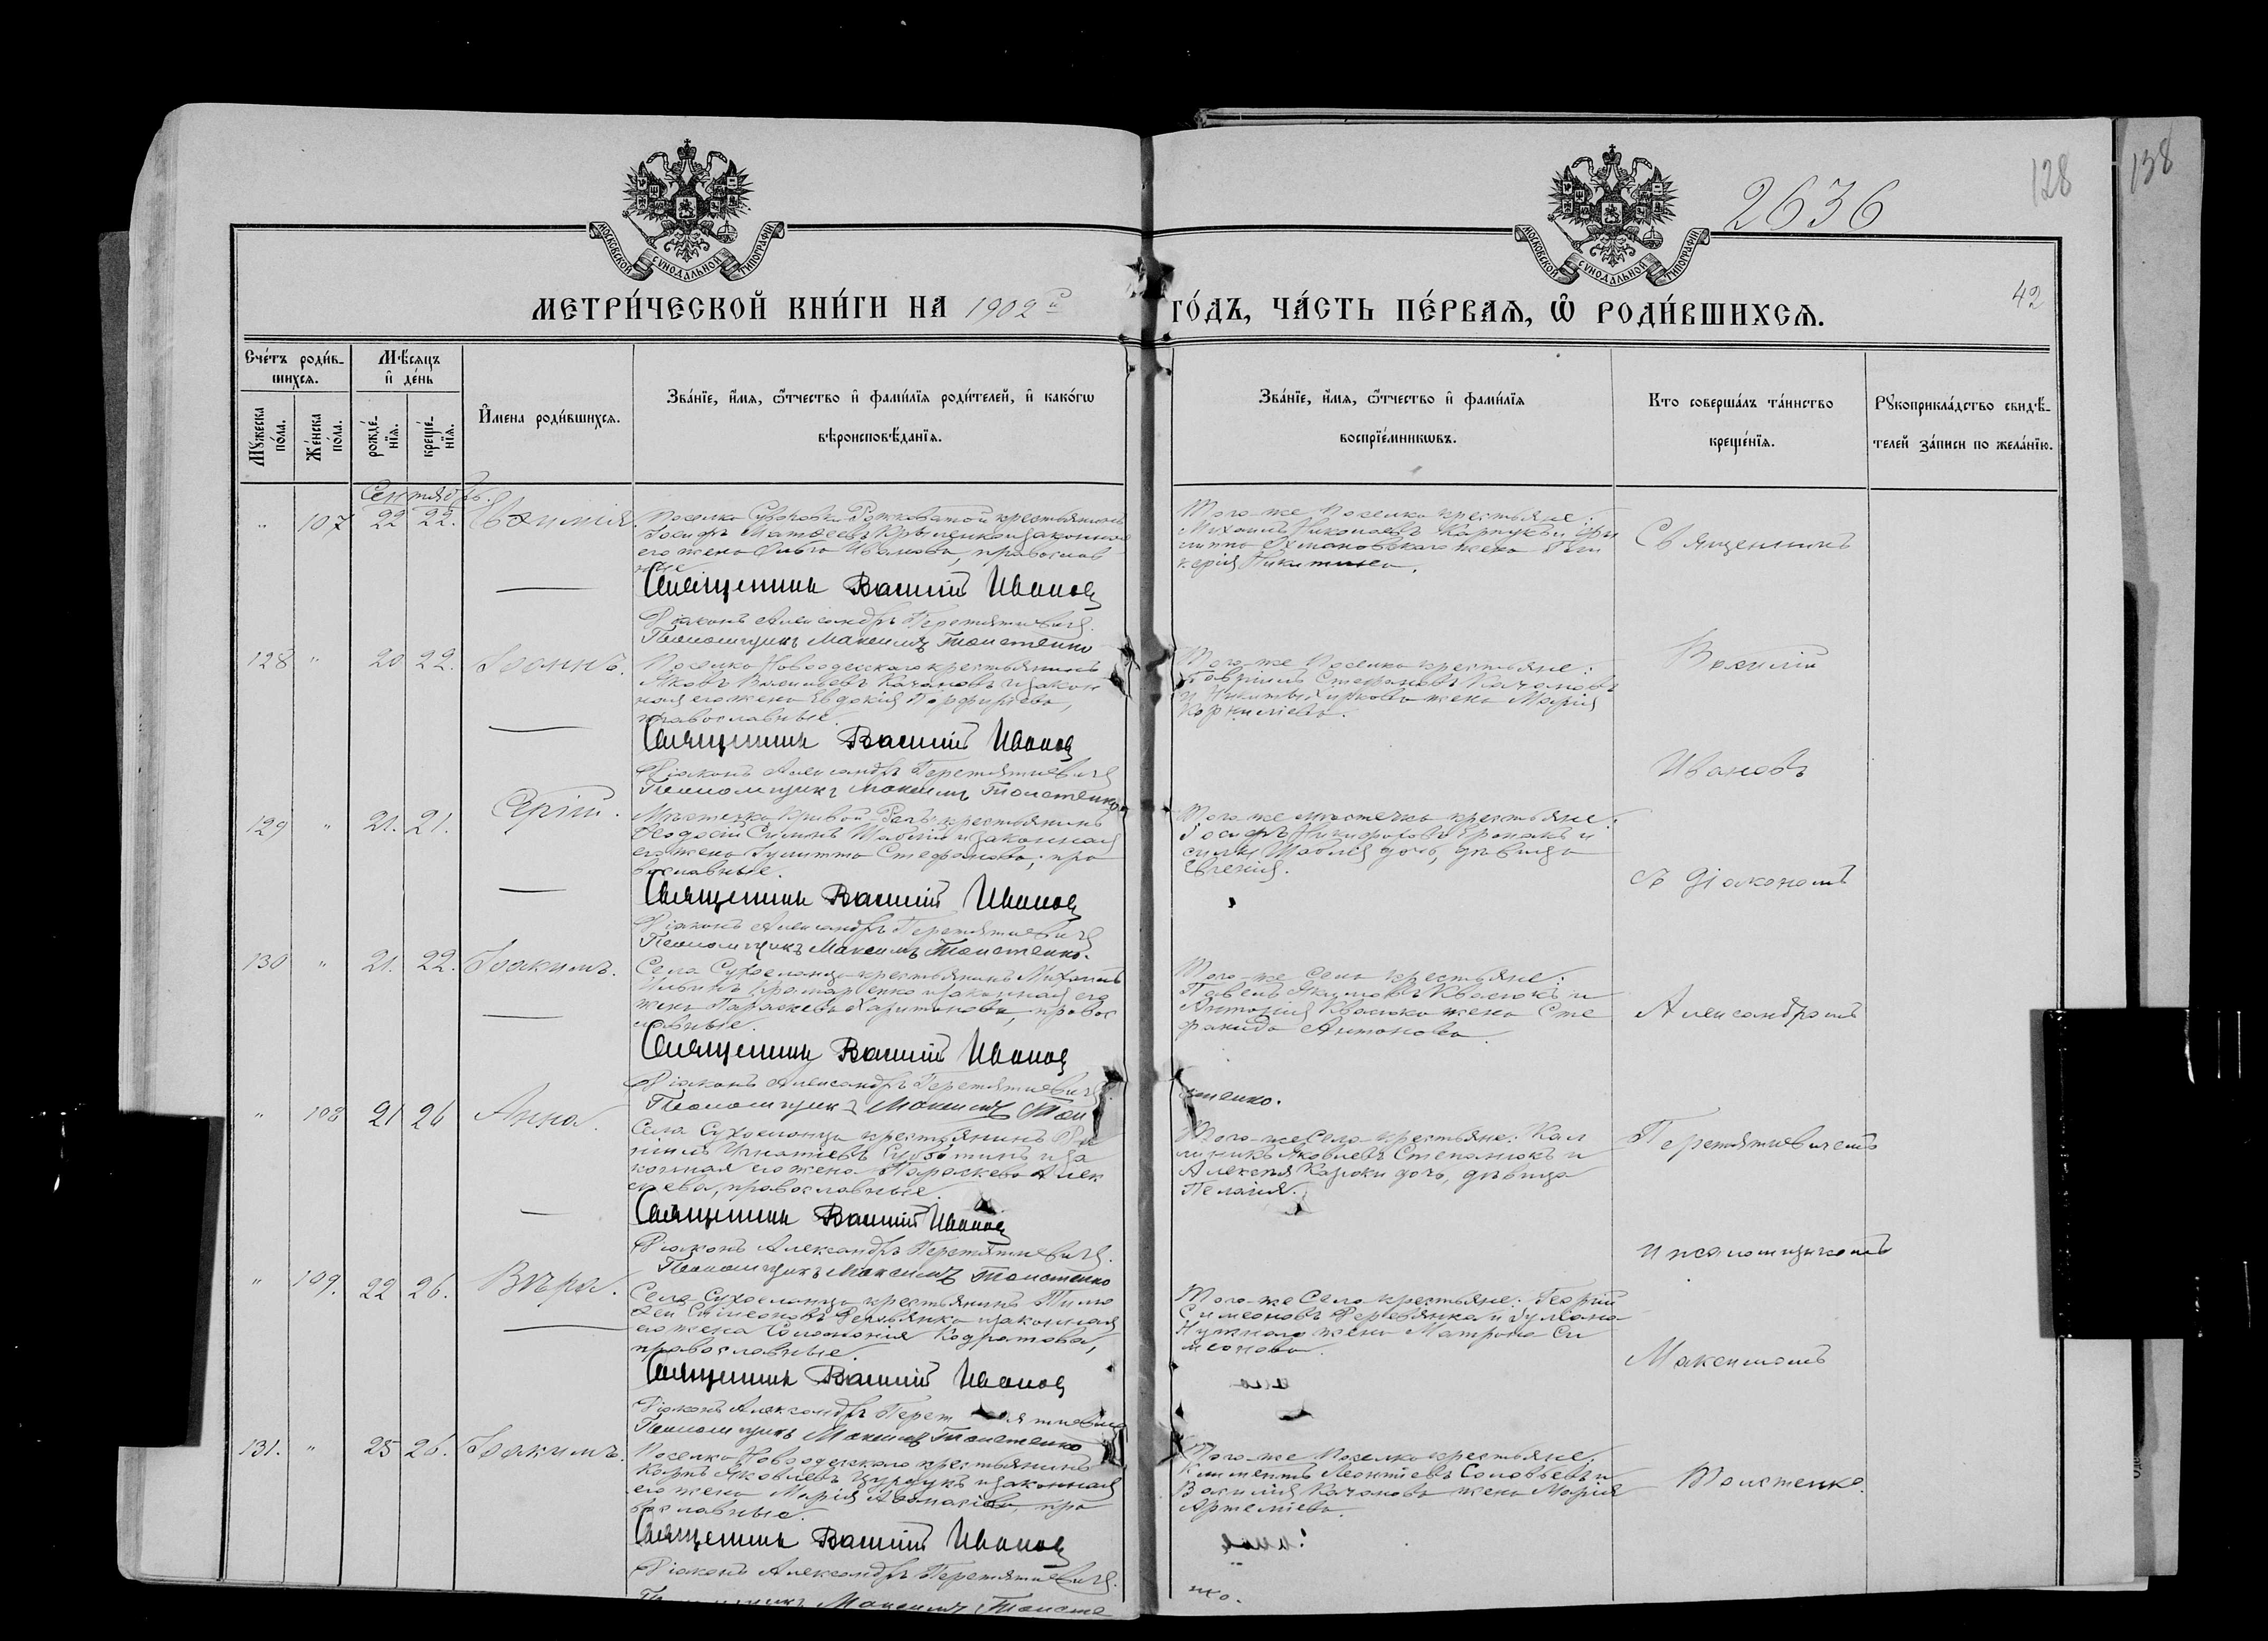 128
138
2636
42
МОСКОВСКОЙ СѴНОДАЛЬНОЙ ТИПОГРАФІИ
МОСКОВСКОЙ СѴНОДАЛЬНОЙ ТИПОГРАФІИ
МЕТРИ́ЧЕСКОЙ КНИ́ГИ НА 1902 й ГО́ДЪ, ЧА́СТЬ ПЕ́РВАѦ, Ѡ҆ РОДИ́ВШИХСѦ.
Сче́тъ роди́в-
шихсѧ.
Мѹ́жеска по́ла.
Же́нска по́ла.
Мѣ́сѧцъ
и҆ де́нь
рожде́-
нїѧ.
креще́-
нїѧ.
И҆мена роди́вшихсѧ.
Зва́нїе, и҆́мѧ, ѻ҆́тчество и҆ фами́лїѧ роди́телей, и҆ како́гѡ
вѣроисповѣ́данїѧ.
Зва́нїе, и҆́мѧ, ѻ҆́тчество и҆ фами́лїѧ
воспрїе́мникѡвъ.
Кто соверша́лъ та́инство
креще́нїѧ.
Рꙋкоприкла́дство свидѣ́-
телей за́писи по жела́нїю.
Сентябрь.
" 107 22 22. Евѳимія.
крестьянинъ
Іосифъ Матѳеевъ и законная
его жена Ольга Иванова, православ
ные
Священник Василий Иванов
Діаконъ Александръ Перетятневичъ.
Псаломщикъ Максимъ Толстенко
Того-же поселка крестьяне:
Михаилъ Николаевъ Карпукъ и Фи
липпа жена Гли
керія Никитина.
Священникъ
128 " 20 22. Іоаннъ.
Поселка Новоодесскаго крестьянинъ
Яковъ Васильевъ Качановъ и закон
ная его жена Евдокія Порфиріева,
православные.
Священник Василий Иванов
Діаконъ Александръ Перетятневичъ
Псаломщикъ Максимъ Толстенко
Того-же поселка крестьяне:
Гавриилъ Стефановъ Качановъ
и Никиты жена Марія
Корниліева.
Василій
Ивановъ
129 " 21. 21. Сергій.
Мѣстечка Кривой-Рогъ крестьянинъ
Ѳеодосій Силинъ и законная
его жена Іулитта Стефанова, пра
вославные.
Священник Василий Иванов
Діаконъ Александръ Перетятневичъ
Псаломщикъ Максимъ Толстенко.
Того же мѣстечка крестьяне:
Іосифъ Никифоровъ и
Силы дочь, дѣвица
Евгенія.
съ діакономъ
130 " 21. 22. Іоакимъ.
Села крестьянинъ Михаилъ
Ильинъ Крамаренко и законная его
жена Параскева Харитонова, правос
лавные.
Священник Василий Иванов
Діаконъ Александръ Перетятневичъ.
Псаломщикъ Максимъ Толстенко.
Того-же села крестьяне:
Павелъ Якимовъ Квасюкъ и
Антонія Квасюка жена Сте
фанида Антонова.
Александромъ
" 108 21 26 Анна.
Села крестьянинъ Да
ніилъ Игнатіевъ и за
конная его жена Параскева Алек
сѣева, православные.
Священник Василий Иванов
Діаконъ Александръ Перетятневичъ.
Псаломщикъ Максимъ Толстенко
Того-же села крестьяне: Кал
линикъ Яковлевъ Степанюкъ и
Алексѣя дочь, дѣвица
Пелагія.
Перетятневичемъ
и псаломщикомъ
" 109. 22 26. Вѣра.
Села крестьянинъ Тимо
ѳей Симеоновъ Деревянко и законная
его жена Соломонія Кодратова,
православные.
Священник Василий Иванов
Діаконъ Александръ Перетятневичъ
Псаломщикъ Максимъ Толстенко
Того-же села крестьяне: Георгій
Симеоновъ Деревянка и Іуліана
жена Матрона Си
меонова.
Максимомъ
131. " 25 26. Іоакимъ.
Поселка Новоодесскаго крестьянинъ
Карпъ Яковлевъ и законная
его жена Марія Аѳанасіева, пра
вославные.
Священник Василий Иванов
Діаконъ Александръ Перетятневичъ.
Псаломщикъ Максимъ Толстенко.
Того-же поселка крестьяне:
Климентъ Леонтіевъ Соловьевъ и
Василія Качанова жена Марія
Артеміева.
Толстенко.